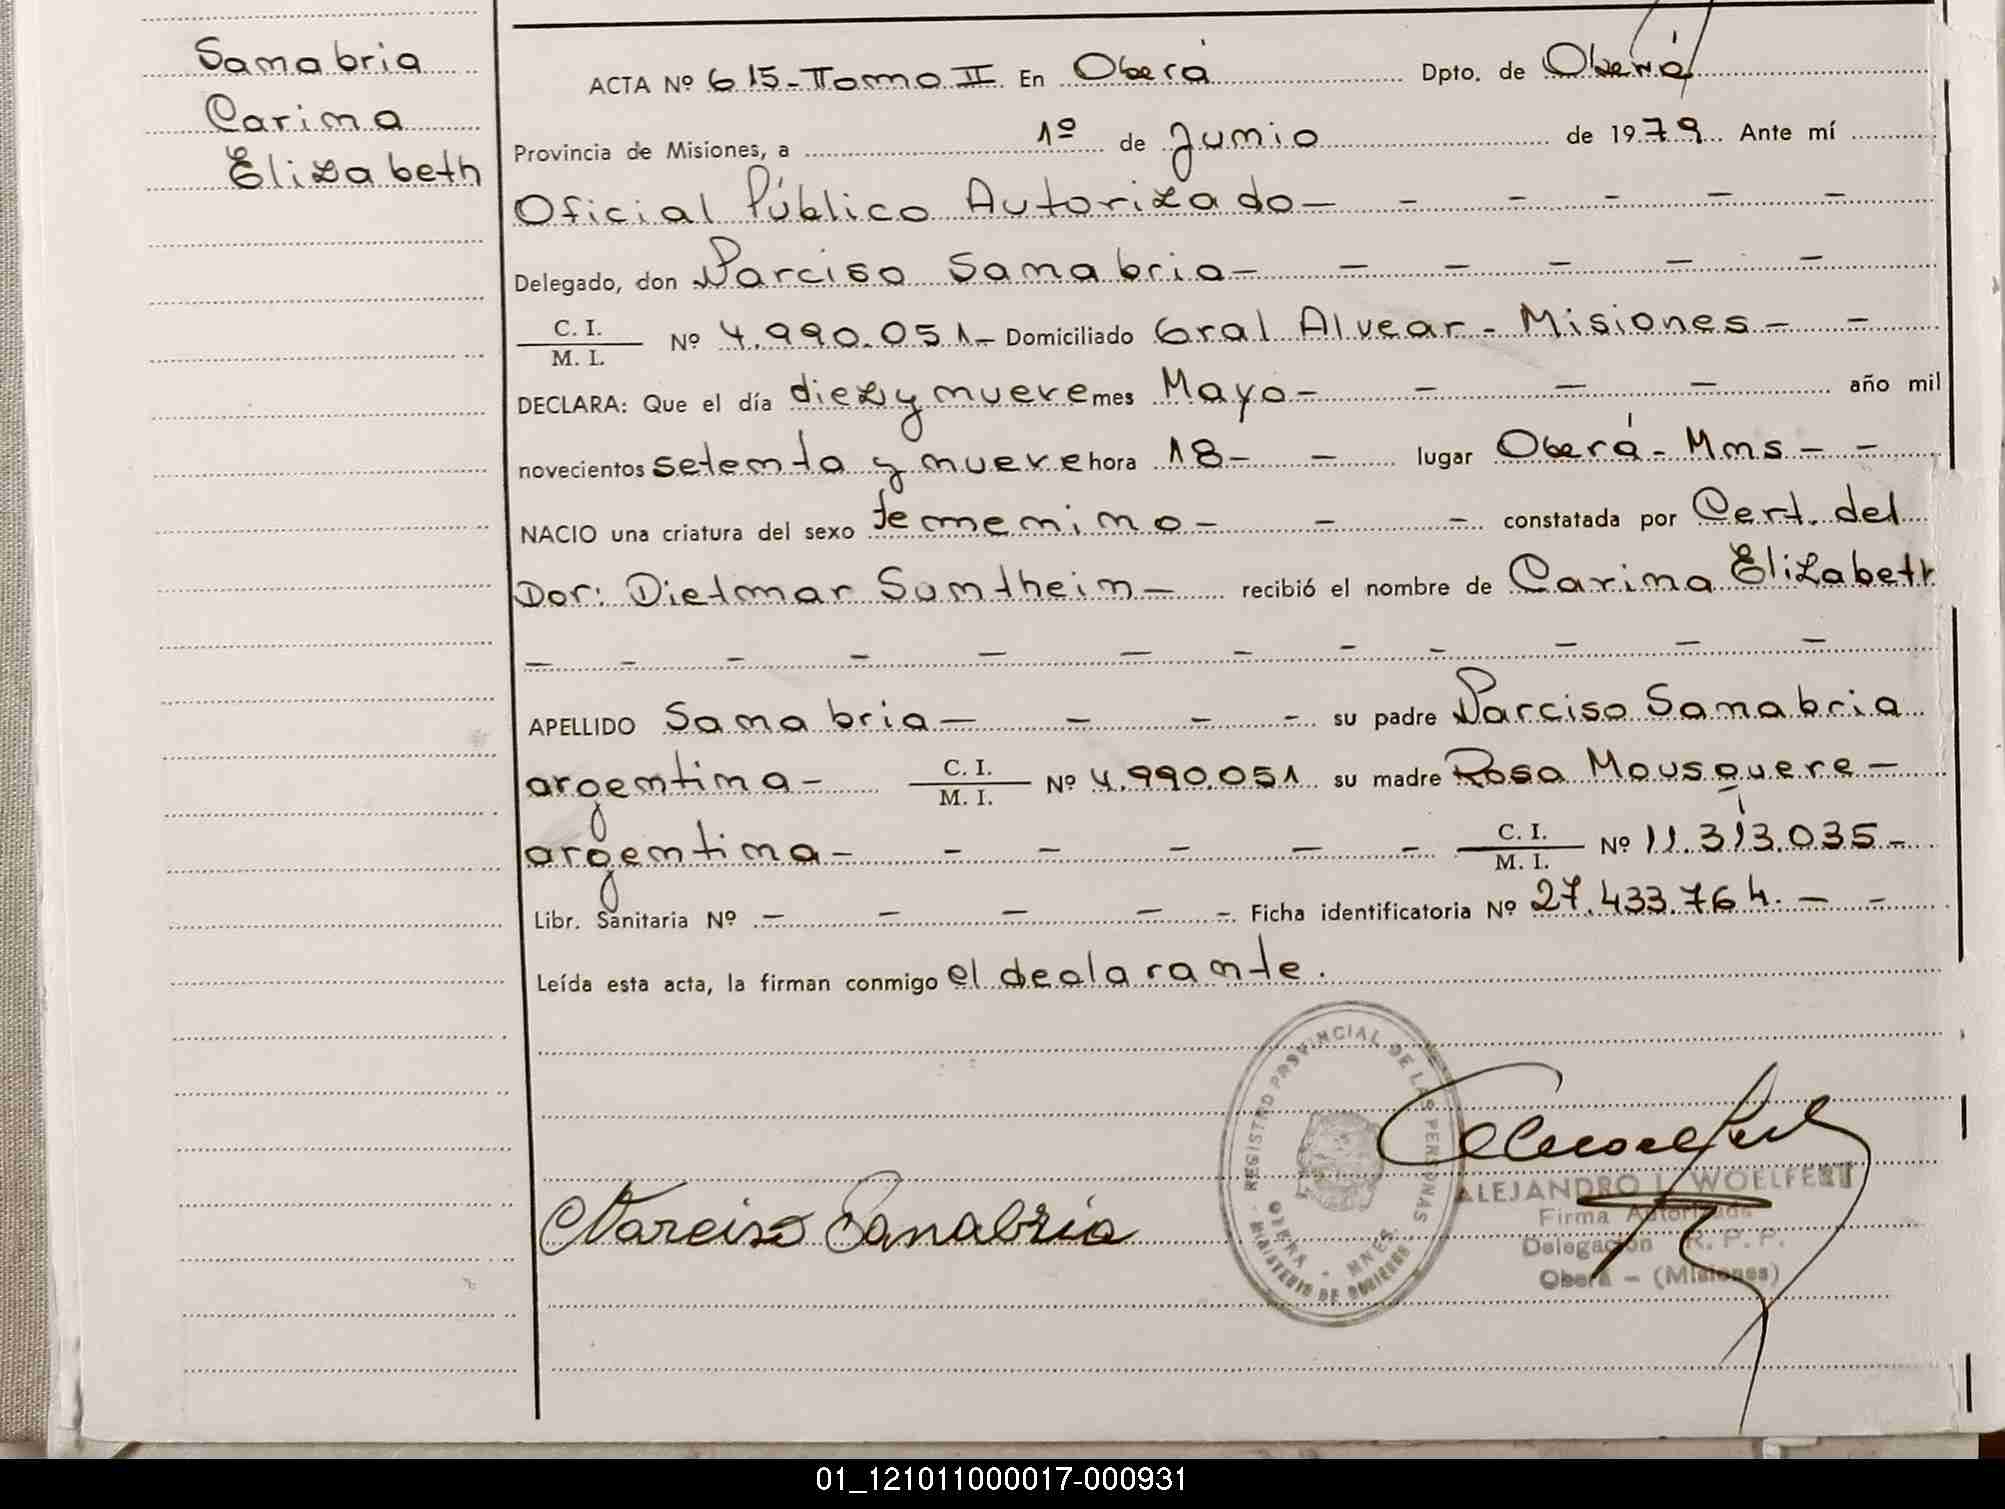 Sanabria
Carina
Elizabeth
ACTA Nº 615-Tomo II En Oberá Dpto. de Oberá
Provincia de Misiones, a 1º de Junio de 1979 Ante mí
Oficial Público Autorizado - - - - - -
Delegado, don Narciso Sanabria - - - - - -
C. I. / M. I. Nº 4.990.051 - Domiciliado Gral Alvear - Misiones - -
DECLARA: Que el día diez y nueve mes Mayo - - - - año mil
novecientos setenta y nueve hora 18 - - lugar Oberá - Mnes - -
NACIO una criatura del sexo femenino - - - constatada por Cert. del
Dor: Dietmar Sontheim - recibió el nombre de Carina Elizabeth
- - - - - - - - - - - -
APELLIDO Sanabria - - - - su padre Narciso Sanabria
argentina - C. I. / M. I. Nº 4.990.051 su madre Rosa Mousquere -
argentina - - - - - - C. I. / M. I. Nº 11.313.035 -
Libr. Sanitaria Nº - - - - - Ficha identificatoria Nº 27.433.764. - -
Leída esta acta, la firman conmigo el declarante.
REGISTRO PROVINCIAL DE LAS PERSONAS
OBERA - MNES.
MINISTERIO DE GOBIERNO
Narciso Sanabria
ALEJANDRO L. WOELFERT
Firma Autorizada
Delegación R. P. P.
Oberá - (Misiones)
01_121011000017-000931